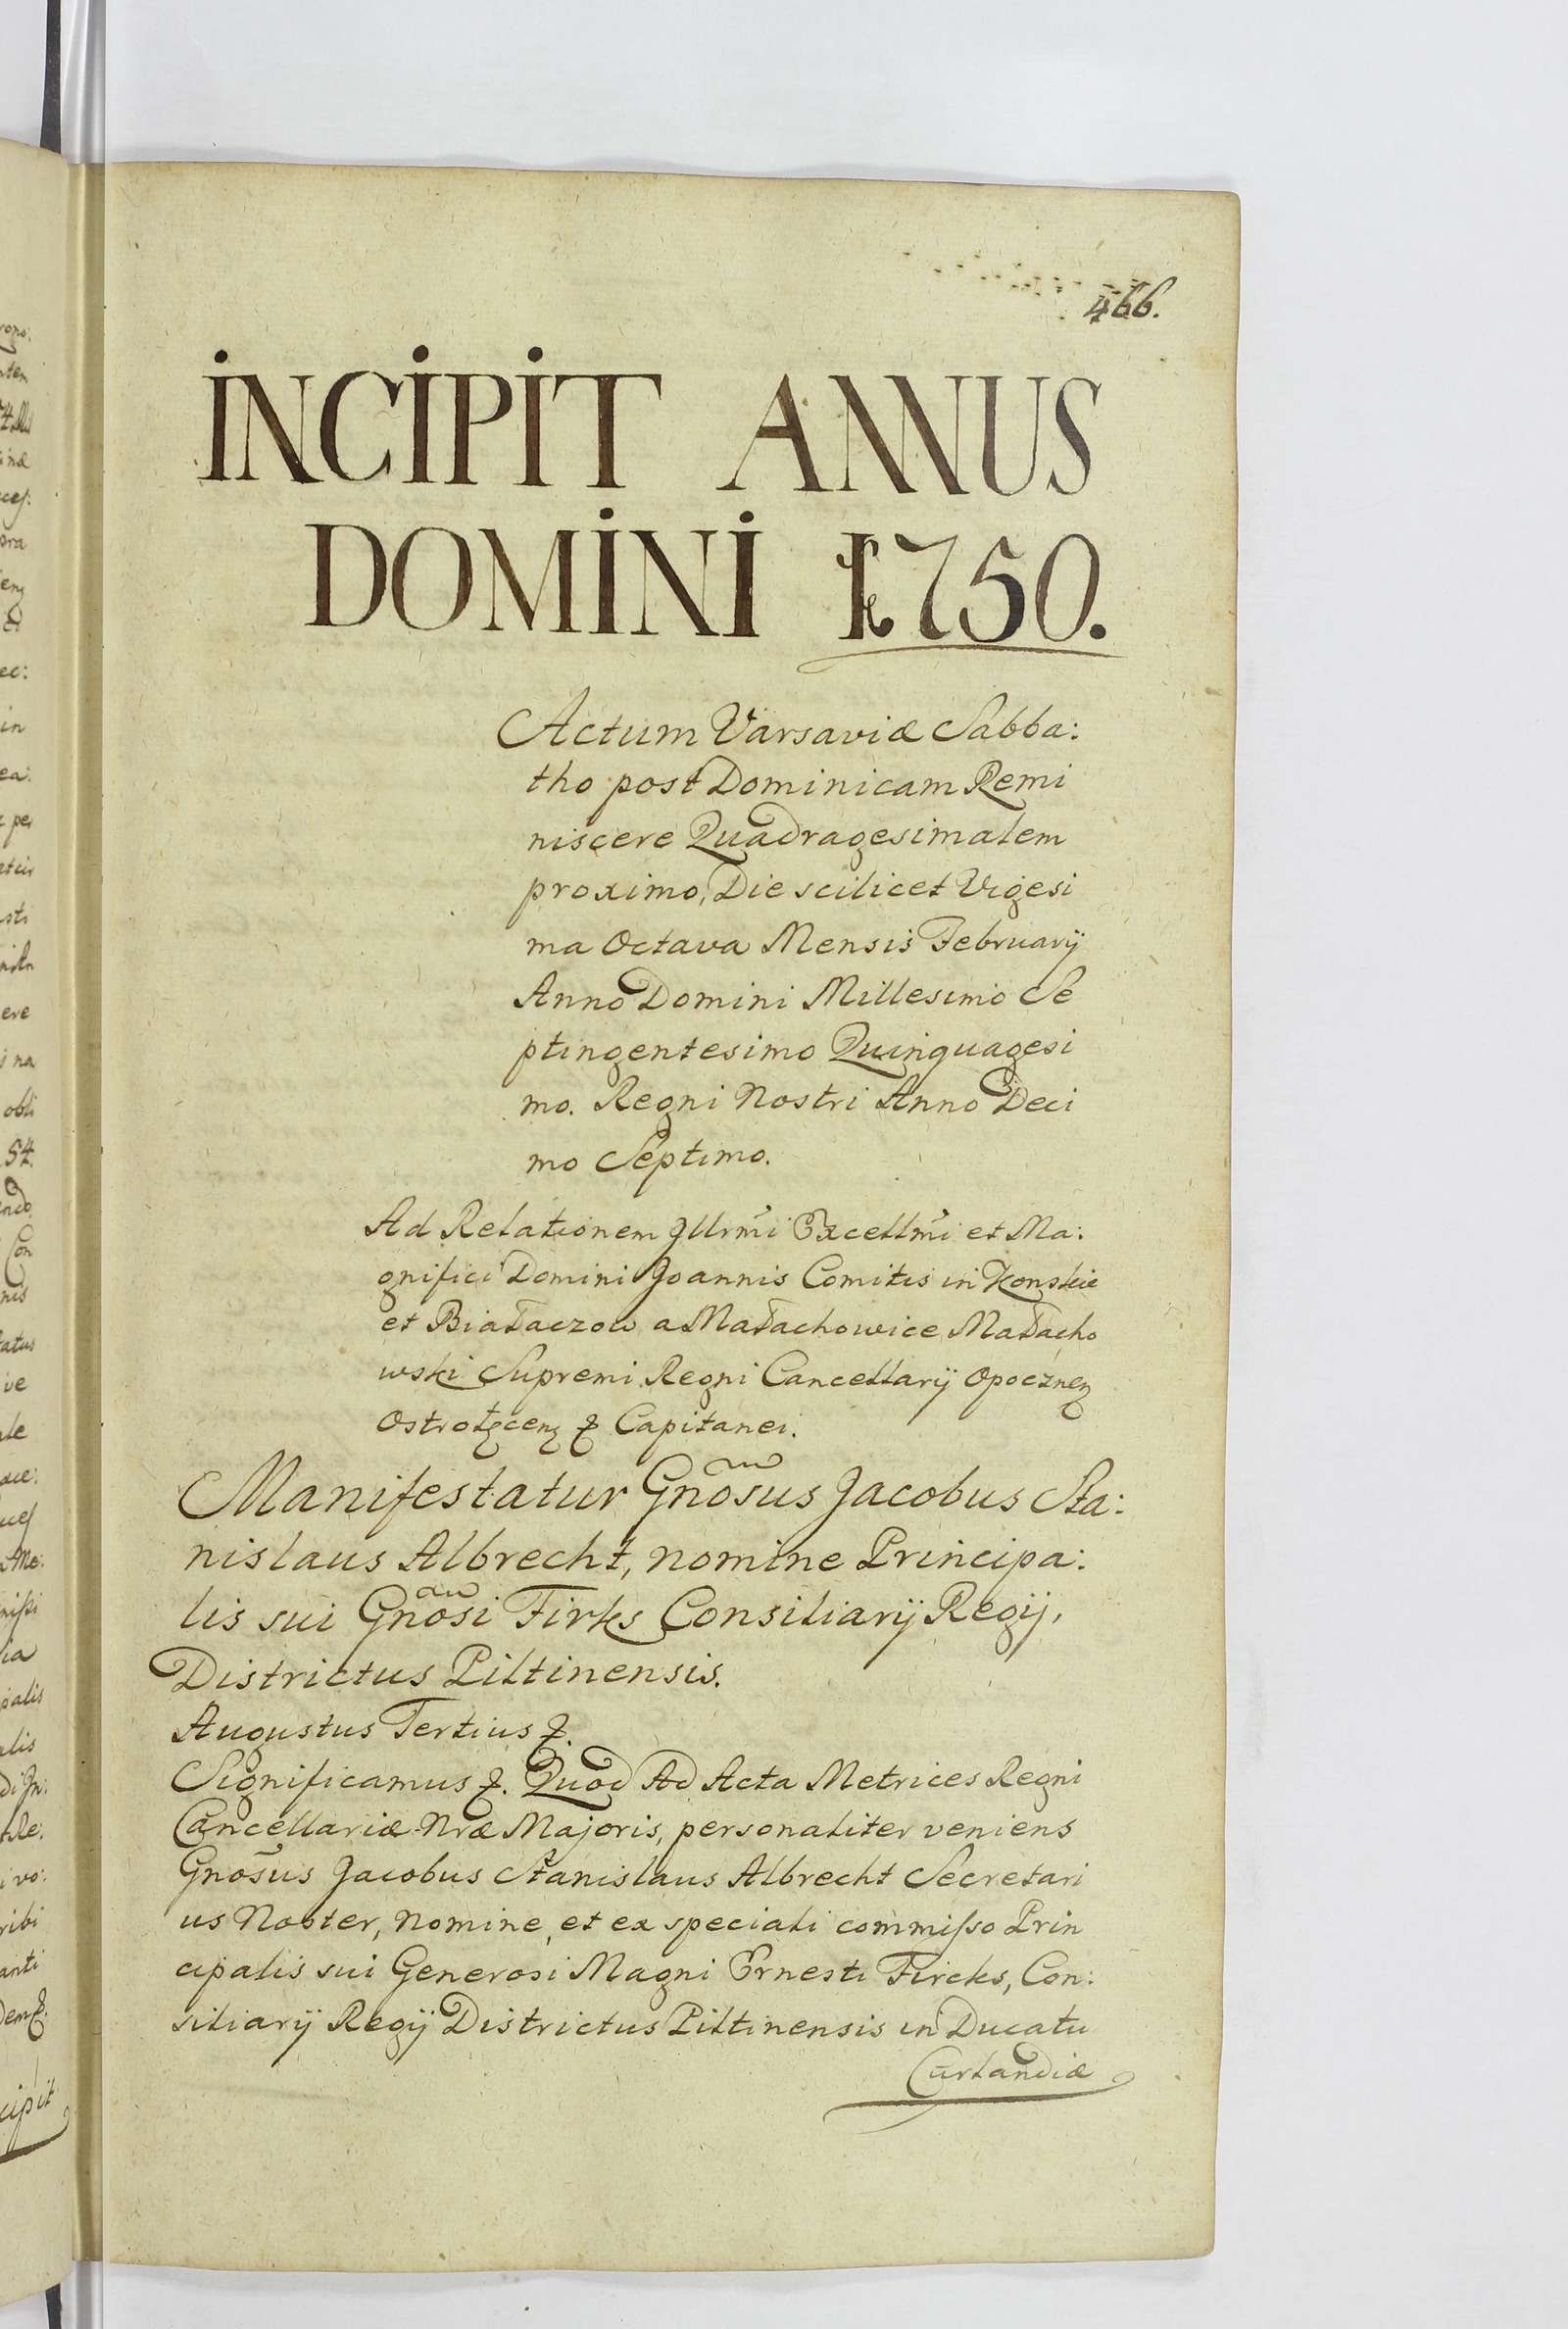 466.
INCIPIT ANNUS
DOMINI 1750.
Actum Varsaviæ Sabba:
tho post Dominicam Remi
niscere Quadragesimalem
proximo, Die scilicet Vigesi
ma Octava Mensis Februarÿ
Anno Domini Millesimo Se
ptingentesimo Quinquagesi
mo. Regni Nostri Anno Deci
mo Septimo.
Ad Relationem Illrm̃i Excellm̃i et Ma:
gnifici Domini Joannis Comitis in Konskie
et Białaczow a Małachowice Małacho
wski Supremi Regni Cancellarÿ Opocznen
Ostrołęcen Capitanei.
Manifestatur Gnõsus Jacobus Sta:
nislaus Albrecht, nomine Principa:
lis sui Gnõsi Firks Consiliarÿ Regij,
Districtus Piltinensis.
Augustus Tertius
Significamus Quod Ad Acta Metrices Regni
Cancellariæ Nræ Majoris, personaliter veniens
Gnõsus Jacobus Stanislaus Albrecht Secretari
us Noster, Nomine, et ex speciali commiſso Prin
cipalis sui Generosi Magni Ernesti Fircks, Con:
siliarÿ Regÿ Districtus Piltinensis in Ducatu
Curlandiæ